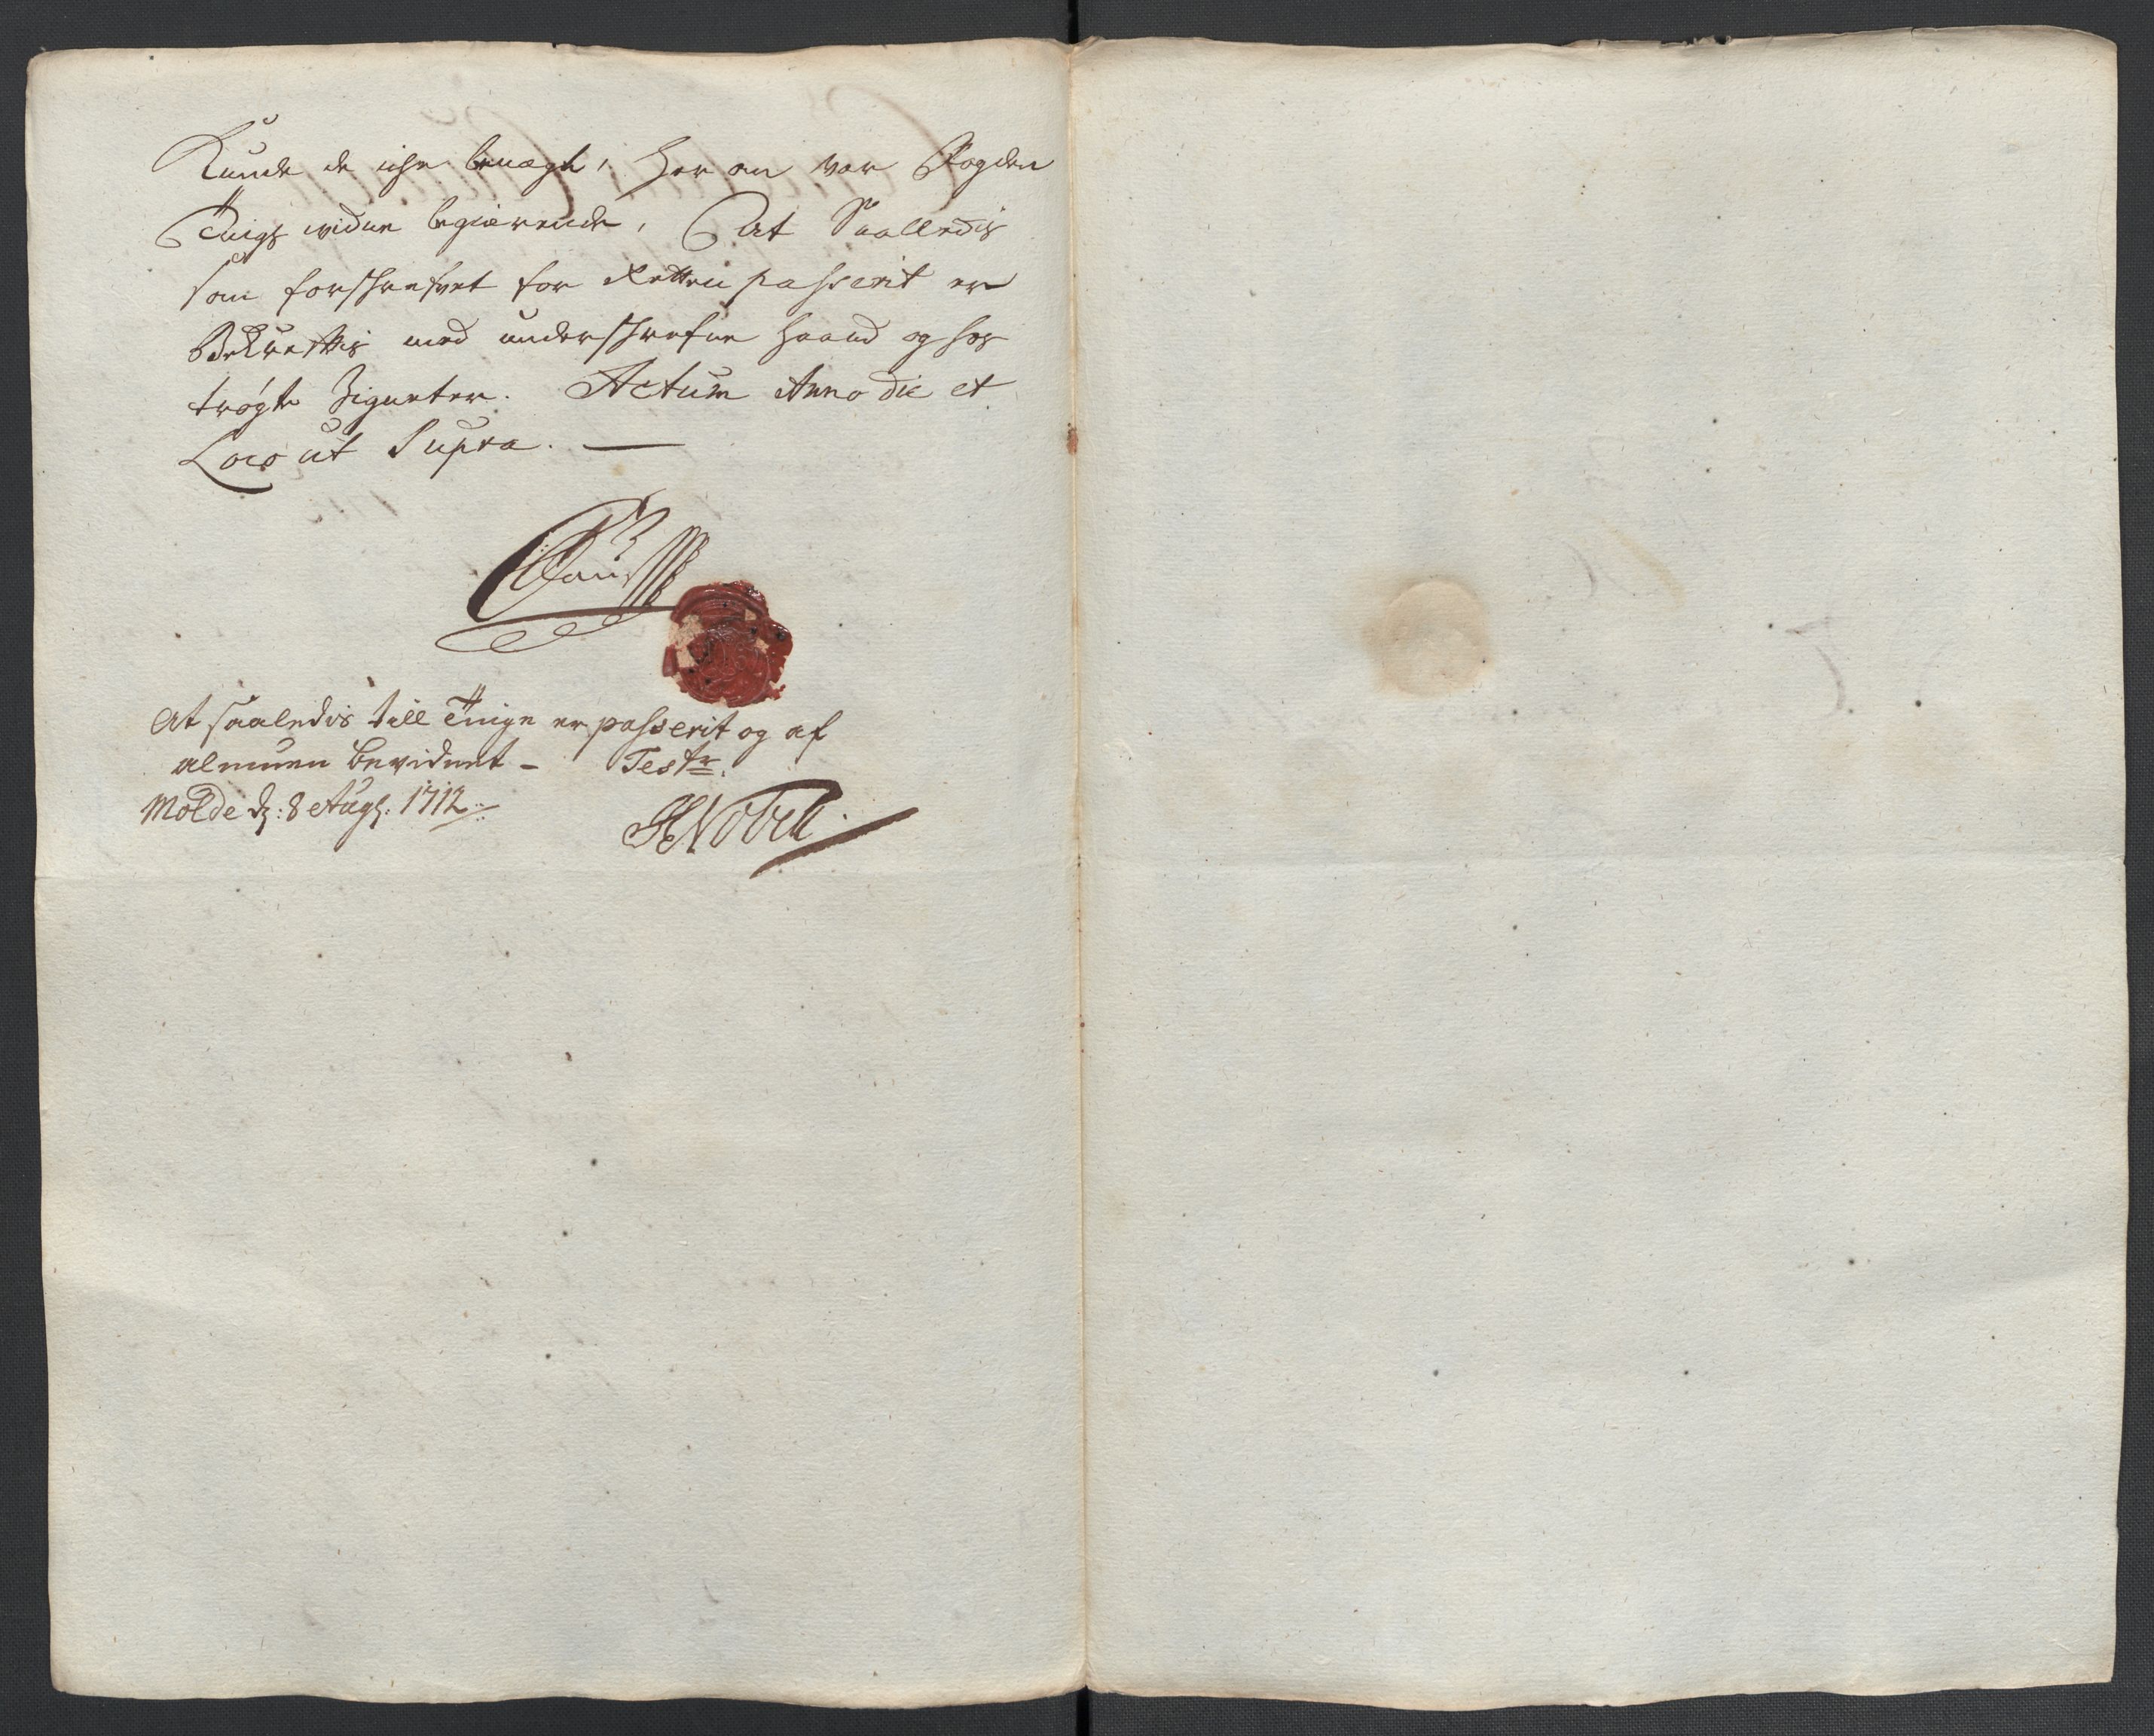 Kunde de iche benægte, Her om var Fogden
Tings vidne begiærende, At Saalledis
som forschrefvet for Retten passerit er
Bekreftis med underschrefne haand og hos
trøgte Zigneter. Actum Anno die et
Loco ut Supra.
At saaledis till Tinge er passerit og af
almuen bevidnet - Testr.
Molde d: 8 Aug: 1712